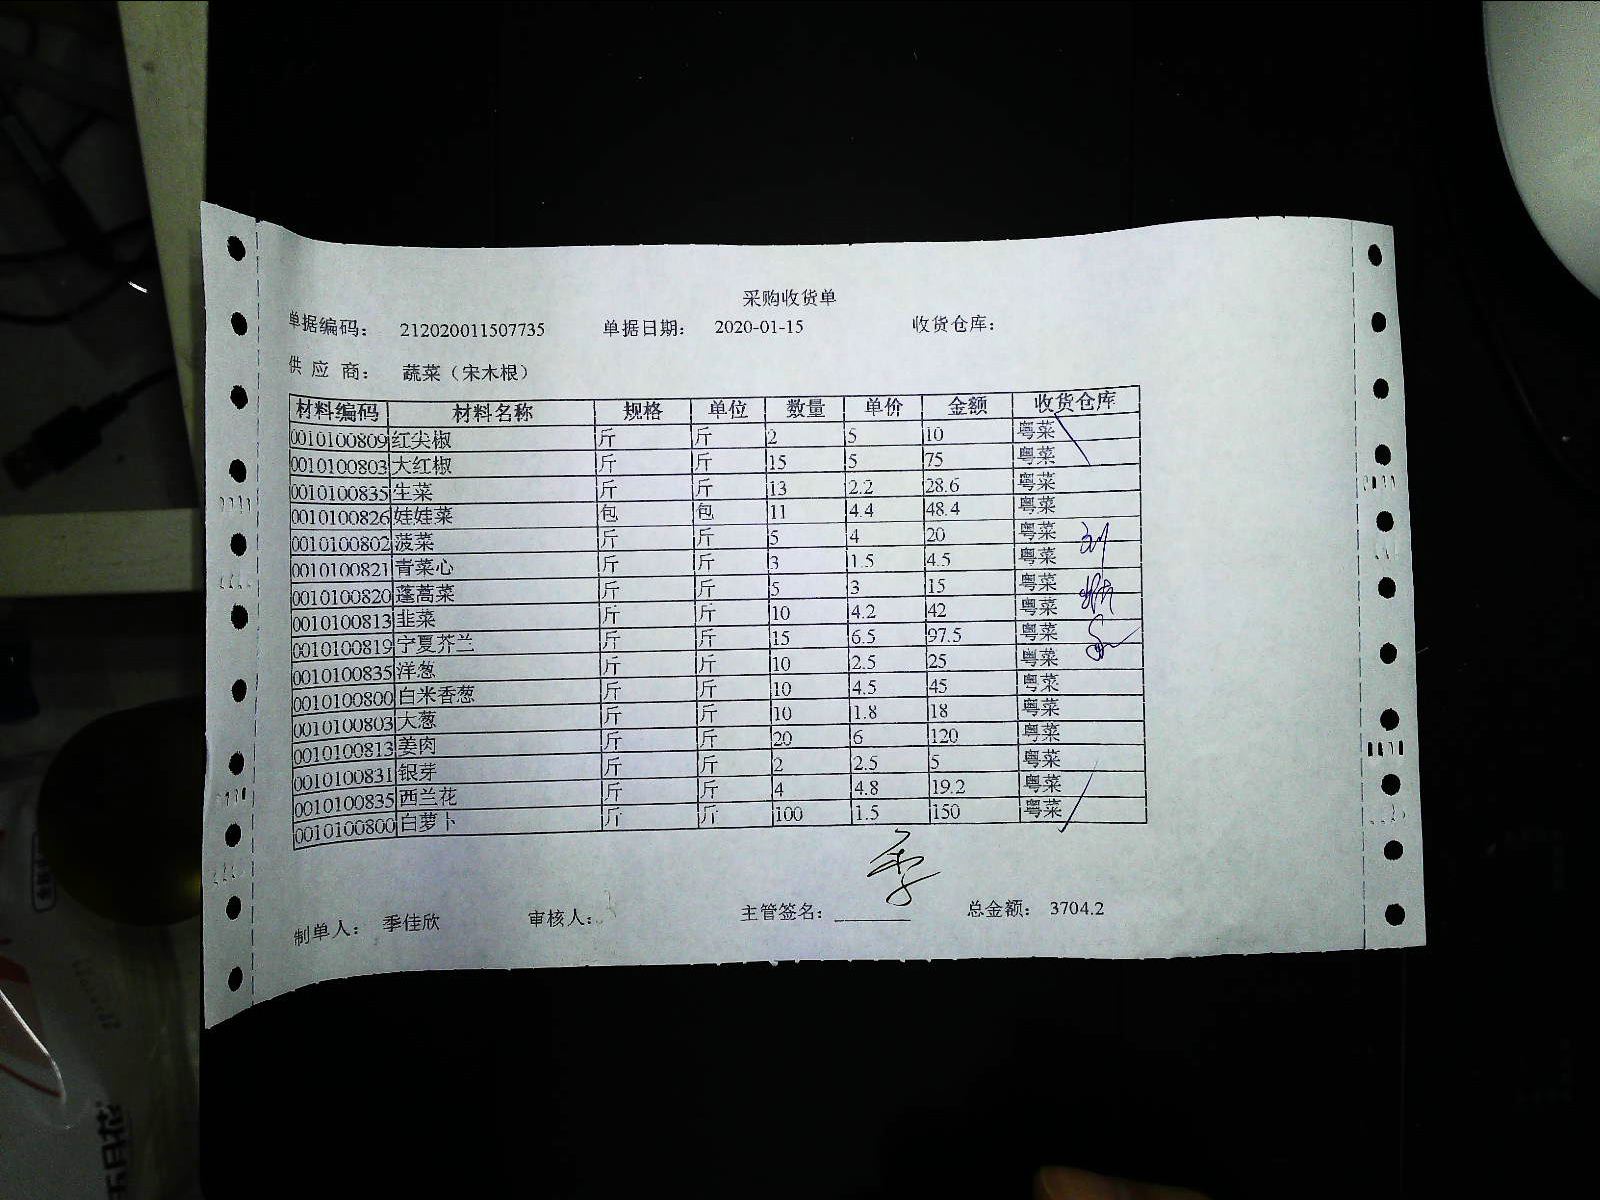 采购收货单
单据编码： 212020011507735 单据日期： 2020-01-15 收货仓库：
供 应 商： 蔬菜（宋木根）
材料编码 材料名称 规格 单位 数量 单价 金额 收货仓库
0010100809 红尖椒 斤 斤 2 5 10 粤菜
0010100803 大红椒 斤 斤 15 5 75 粤菜
0010100835 生菜 斤 斤 13 2.2 28.6 粤菜
0010100826 娃娃菜 包 包 11 4.4 48.4 粤菜
0010100802 菠菜 斤 斤 5 4 20 粤菜
0010100821 青菜心 斤 斤 3 1.5 4.5 粤菜
0010100820 蓬蒿菜 斤 斤 5 3 15 粤菜
0010100813 韭菜 斤 斤 10 4.2 42 粤菜
0010100819 宁夏芥兰 斤 斤 15 6.5 97.5 粤菜
0010100835 洋葱 斤 斤 10 2.5 25 粤菜
0010100800 白米香葱 斤 斤 10 4.5 45 粤菜
0010100803 大葱 斤 斤 10 1.8 18 粤菜
0010100813 姜肉 斤 斤 20 6 120 粤菜
0010100831 银芽 斤 斤 2 2.5 5 粤菜
0010100835 西兰花 斤 斤 4 4.8 19.2 粤菜
0010100800 白萝卜 斤 斤 100 1.5 150 粤菜
季
制单人： 季佳欣 审核人： 主管签名： 总金额： 3704.2